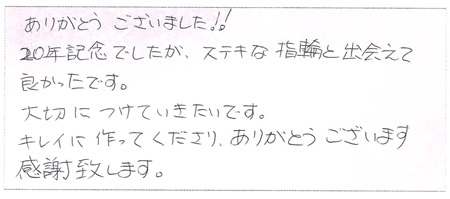 ありがとうございました!!
20年記念でしたが、ステキな指輪と出会えて
良かったです。
大切につけていきたいです。
キレイに作ってくださり、ありがとうございます
感謝致します。